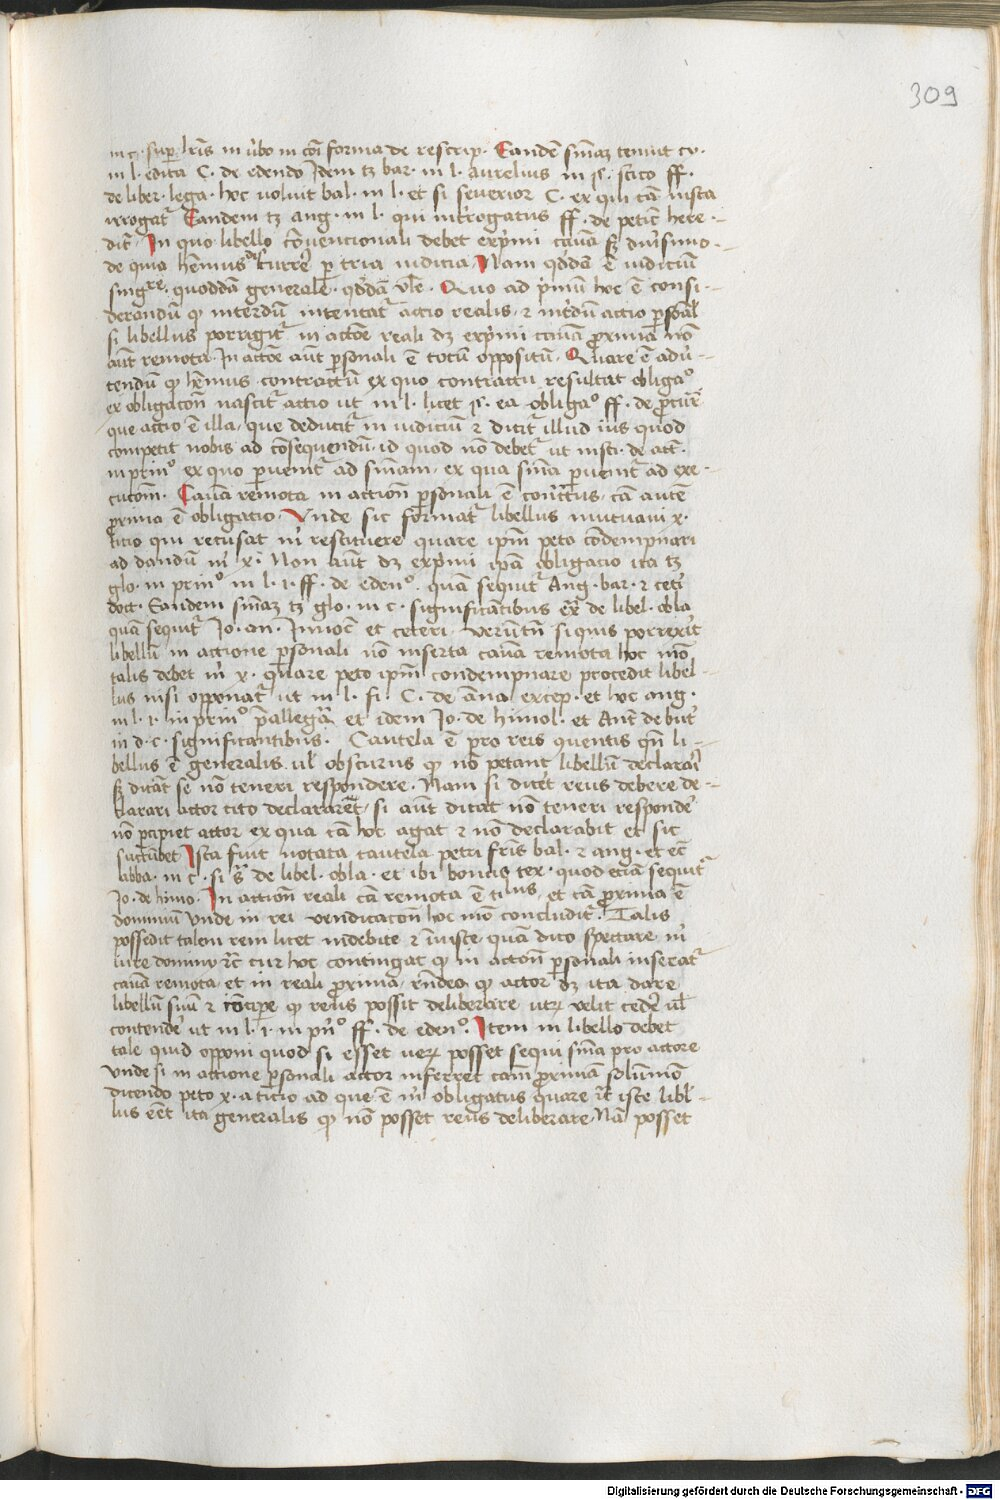 309
in c. sup. lris in v̉bo in cōi forma de rescrip. Eandē sn̄iaz tenuit cy.
in l. edita C. de edendo Idem tz bar. in l. aurelius in §. stico ff.
de liber. lega. hoc voluit bal. in l. et si severior C. ex qui cā infa
irrogat̄ Eandem tz ang. in l. qui int̄rogatus ff. de petic̄ here-
dit̄. In quo libello cōvencionali debet exp̄mi causa sz dūsimo-
de quia hēmus currē p tria iudicia. Nam qddā ē iudiciū
singre, quoddā generale qddā vl̄e. Quo ad p̄mū hoc ē consi-
derandū qz interdū intentat̄ actio realis, ⁊ int̄dū actio psōal
si libellus porrigit̄ in actōe reali dz exp̄mi causā proximā nō
aūt remota. In actōe aūt psonali ē totū oppositū. Quare ē adū-
tendū qz hēmus contractū ex quo contractu resultat obligao
ex obligacōn nascit̄ actio ut in l. licet §. ea obligao ff. de procur̄
que actio ē illa, que deducit̄ in iudiciū ⁊ dicit̄ illud ius quod
competit nobis ad cōsequendū id quod nō debet̄ ut insti. de act̄.
in prino ex quo pvenit̄ ad sn̄iam, ex qua sn̄ia pvenit̄ ad exe-
cucōm. Causa remota in actiōn psonali ē cont̄ctus, cā autē
proxima ē obligatio. Vnde sic format̄ libellus mutuavi x.
titio qui recusat m̄ restituere quare ip̄m peto cōdempnari
ad dandū m̄ x. Non aūt dz exp̄mi ip̄a obligacio ita tz
glo. in prino in l. i. ff. de edeno. quā sequit̄ Ang. bar. ⁊ cet̄i
doct. Eandem sn̄iaz tz glo. in c. significātibus ex̄ de libel. obla
quā sequit̄ Jo. an. Innoc̄ et ceteri. verūtn̄ si quis porrexit̄
libellū in actione psonali nō inserta causa remota hoc mō
talis debet m̄ x. quare peto ip̄m condempnare procedit libel-
lus nisi opponat̄ ut in l. fi. C. de ānna excep. et hoc ang.
in l. i. in prino p̄allegā et idem Jo. de himol. et Ant̄ de but̄
in d. c. significantibus. Cautela ē pro reis quentis qn̄ li-
bellus ē generalis vl̄ obscurus qz nō petant libellū declarari
sz dicāt se nō teneri respondere. Nam si dicet̄ reus debere de-
clarari actor cito declararet, si aūt dicat nō teneri respondē
nō pcipiet actor ex qua cā hoc agat ⁊ nō declarabit et sic
succūbet Ista fuit notata cautela petri fris bal. ⁊ ang. et ec̄
abba. in c. si s̄ de libel. obla. et ibi bonus tex. quod eciā sequit̄
Jo. de himo. In actiōn reali cā remota ē titlus, et cā proxima ē
dominiū Vnde in rei vendicacōn hoc mō concludit̄. Talis
possedit talem rem licet indebite ⁊ īiuste, quā dico spectare m̄
iure dominij ⁊c̄ cur hoc contingat qz in actōn psonali inserat̄
causā remota, et in reali proxima, rn̄deo qz actor dz ita dare
libellū suū ⁊ qz reus possit deliberare, utrz velit cedē vl̄
contendē ut in l. i. in pn̄o ff. de edeno. Item in libello debet
tale quid opponi quod si esset verz posset sequi sn̄ia pro actore
vnde si in actione psonali actor inferret cam proximā solūmō
dicendo peto x. a titio ad que ē m̄ obligatus quare ⁊c̄ iste libl-
lus eēt ita generalis qz nō posset reus deliberare, Nā posset
Digitalisierung gefördert durch die Deutsche Forschungsgemeinschaft - DFG